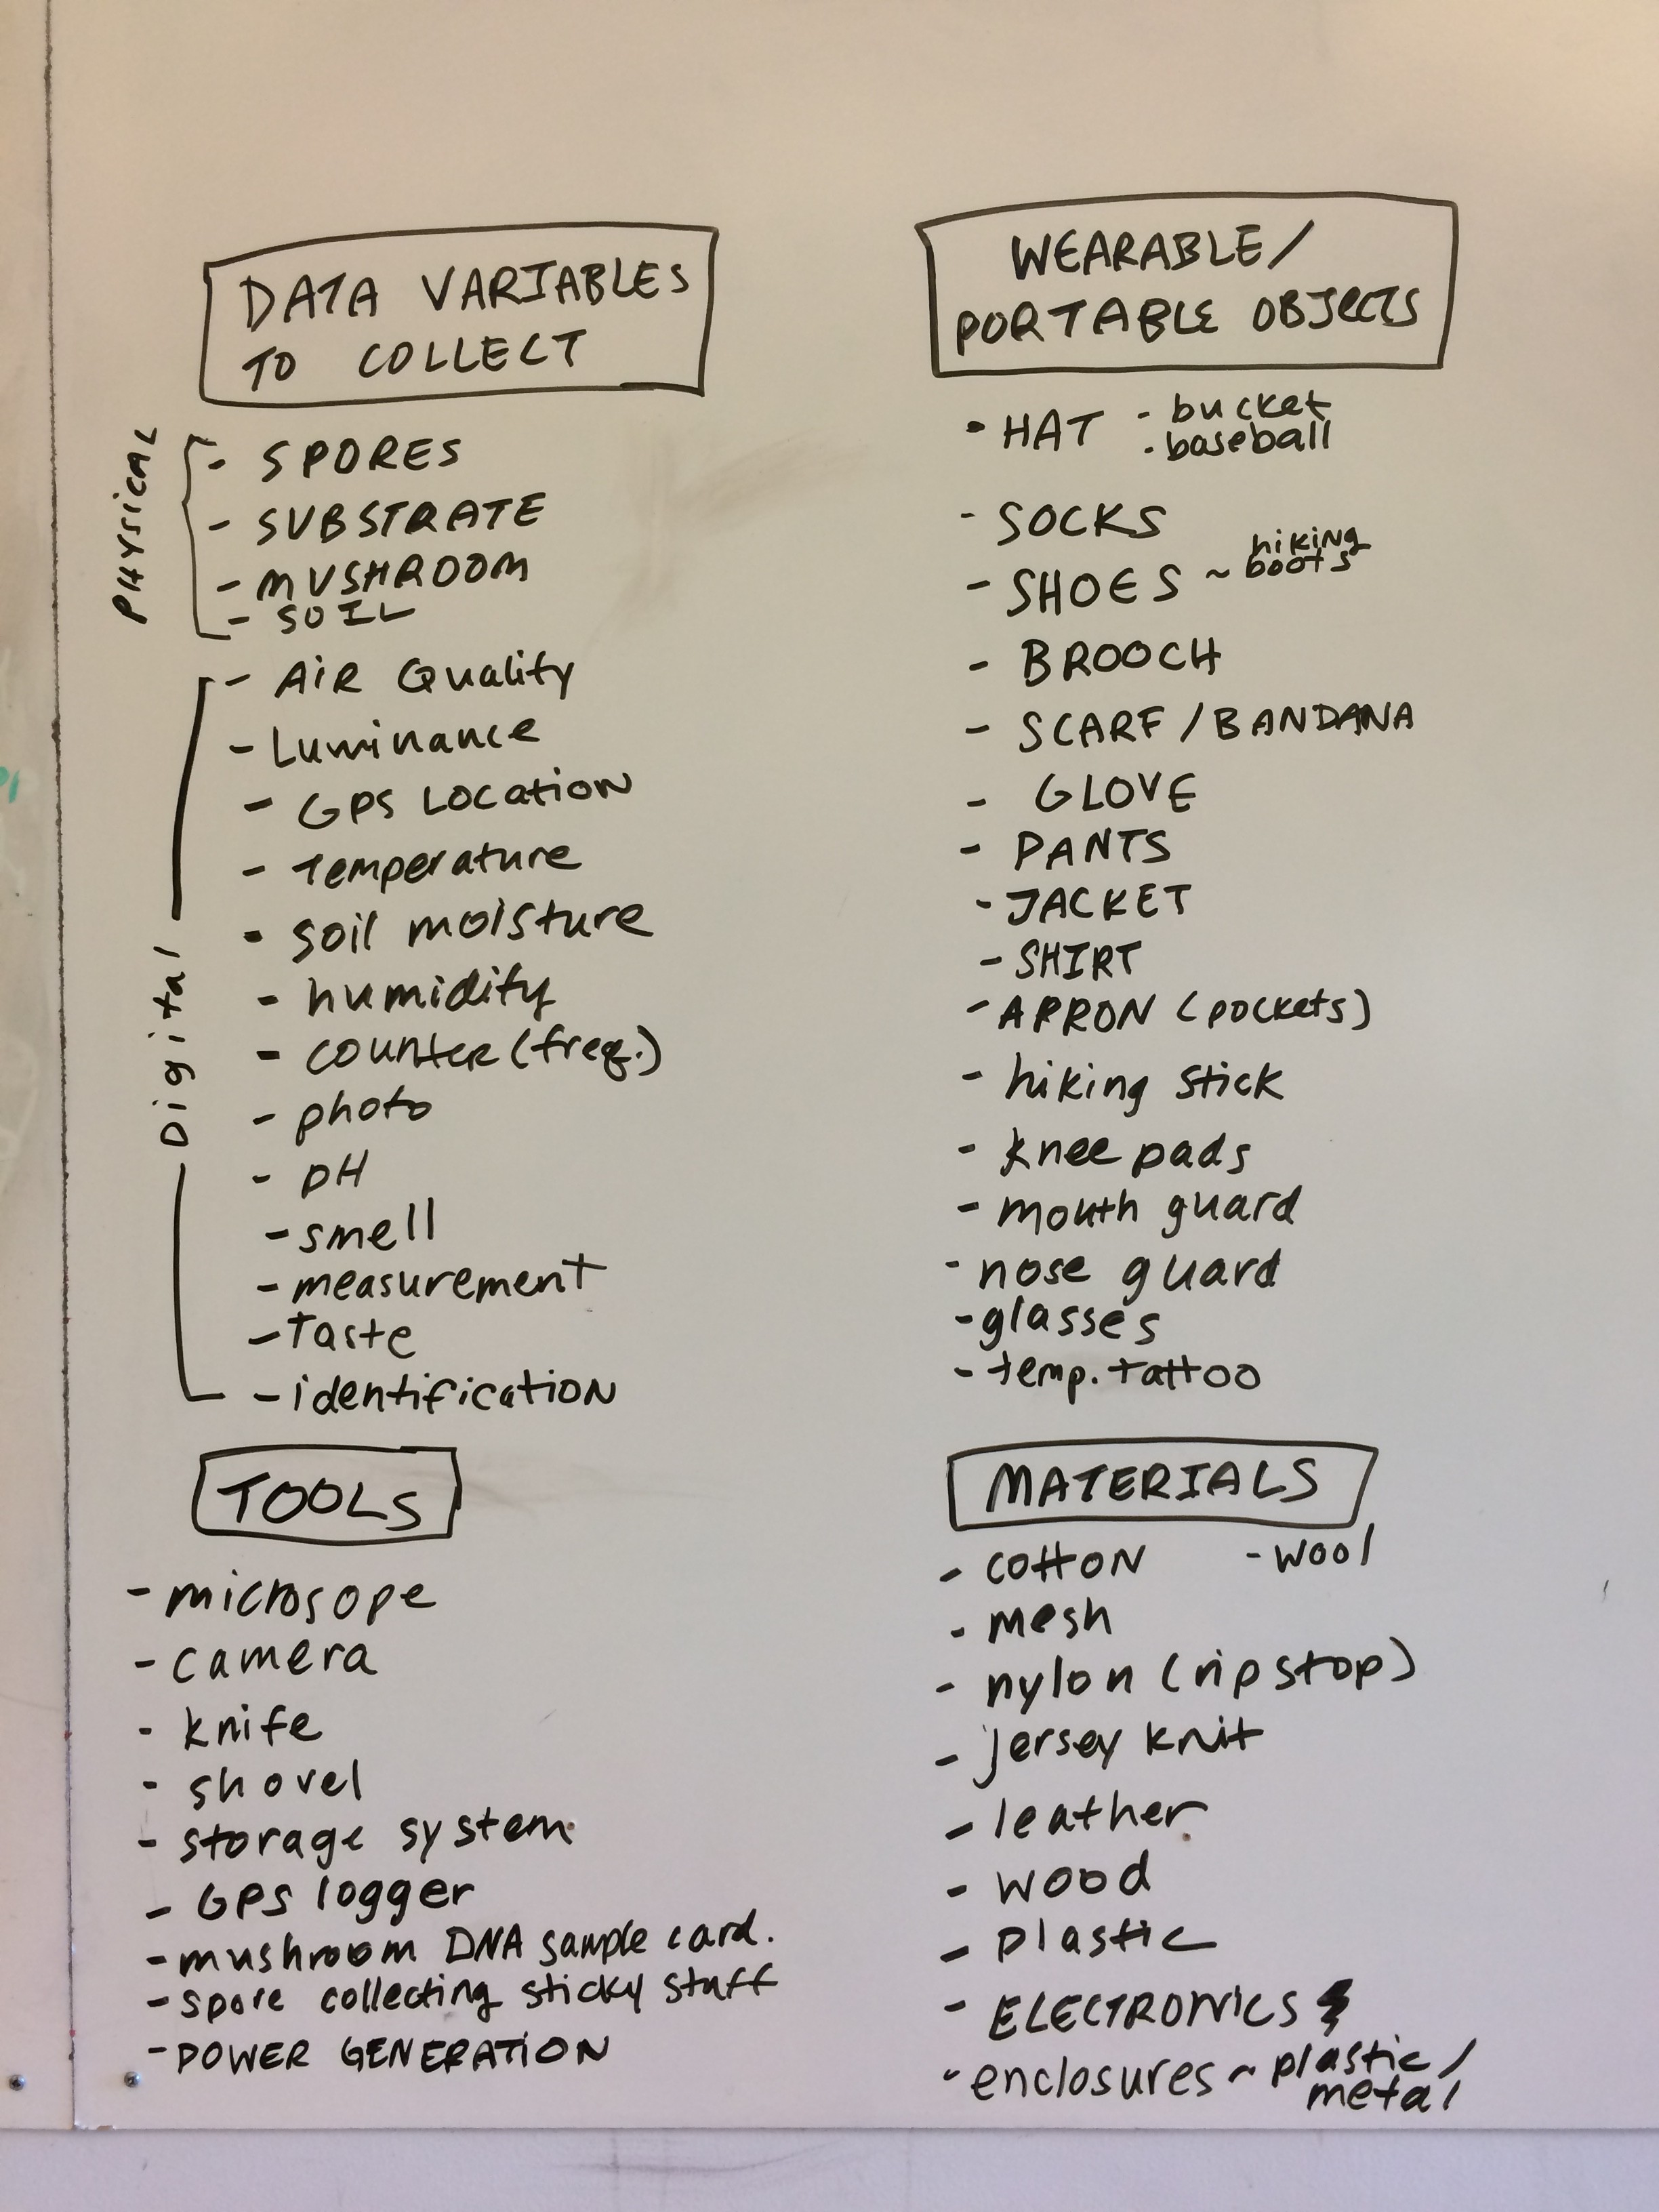 DATA VARIABLES
TO COLLECT
PHYSICAL
- SPORES
- SUBSTRATE
- MUSHROOM
- SOIL
Digital
- AiR Quality
- Luminance
- GPS LOCATION
- Temperature
- soil moisture
- humidity
- counter (freq.)
- photo
- pH
- smell
- measurement
- Taste
- identification
WEARABLE/
PORTABLE OBJECTS
- HAT - bucket
- baseball
- SOCKS
- SHOES ~ hiking
boots
- BROOCH
- SCARF / BANDANA
- GLOVE
- PANTS
- JACKET
- SHIRT
- APRON (pockets)
- hiking stick
- knee pads
- mouth guard
- nose guard
- glasses
- temp. tattoo
TOOLS
- microsope
- camera
- knife
- shovel
- storage system
- GPS logger
- mushroom DNA sample card.
- spore collecting sticky stuff
- POWER GENERATION
MATERIALS
- cotton - wool
- mesh
- nylon (ripstop)
- jersey knit
- leather
- wood
- plastic
- ELECTRONICS
- enclosures ~ plastic /
metal